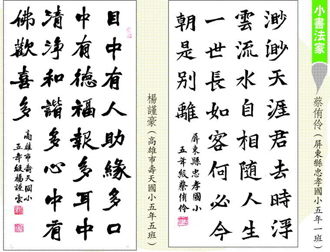 小書法家
蔡侑伶(屏東縣忠孝國小五年一班)
渺渺天涯君去時浮
雲流水自相隨人生
一世長如客何必今
朝是別離
屏東縣忠孝國小
五年級蔡侑伶
楊謹豪(高雄市壽天國小五年五班)
目中有人助緣多口
中有德福報多耳中
清淨和諧多心中有
佛歡喜多
高雄市壽天國小
五年級楊謹豪